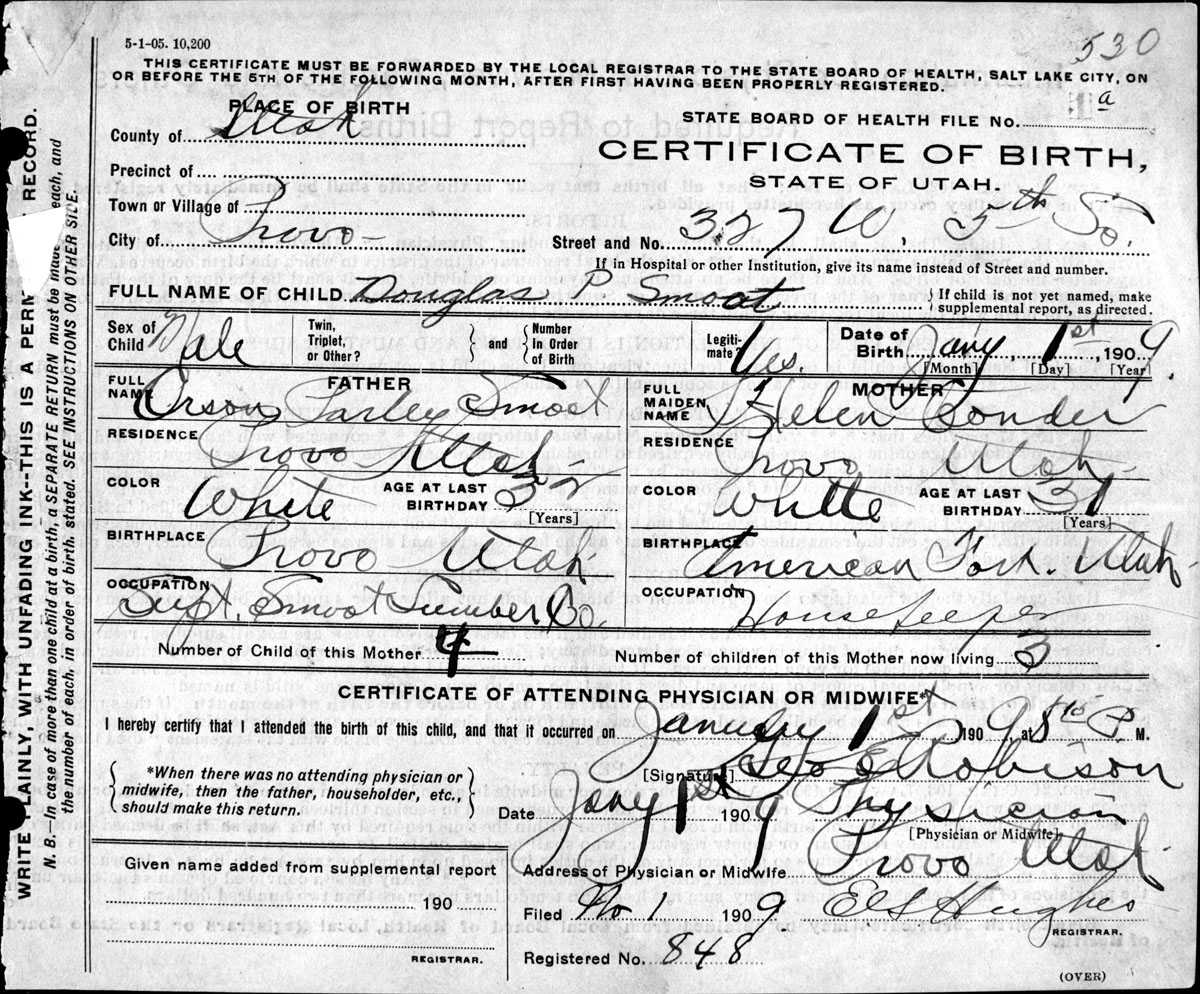 5-1-05. 10,200
530
THIS CERTIFICATE MUST BE FORWARDED BY THE LOCAL REGISTRAR TO THE STATE BOARD OF HEALTH, SALT LAKE CITY, ON
OR BEFORE THE 5TH OF THE FOLLOWING MONTH, AFTER FIRST HAVING BEEN PROPERLY REGISTERED.
PLACE OF BIRTH
County of Utah
Precinct of
Town or Village of
City of Provo
STATE BOARD OF HEALTH FILE NO.
CERTIFICATE OF BIRTH,
STATE OF UTAH.
Street and No. 327 W. 5th So.
If in Hospital or other Institution, give its name instead of Street and number.
FULL NAME OF CHILD Douglas P Smoot { If child is not yet named, make
supplemental report, as directed.
Sex of Child Male
Twin, Triplet, or Other? } and { Number In Order of Birth
Legitimate? Yes.
Date of Birth Jany, 1st, 1909
[Month] [Day] [Year]
FATHER
FULL NAME Orson Farley Smoot
RESIDENCE Provo Utah
COLOR White AGE AT LAST BIRTHDAY 32
[Years]
BIRTHPLACE Provo Utah
OCCUPATION Supt. Smoot Lumber Co.
MOTHER
FULL MAIDEN NAME Helen Conder
RESIDENCE Provo Utah
COLOR White AGE AT LAST BIRTHDAY 31
[Years]
BIRTHPLACE American Fork. Utah
OCCUPATION Housekeeper
Number of Child of this Mother 4
Number of children of this Mother now living 3
CERTIFICATE OF ATTENDING PHYSICIAN OR MIDWIFE*
I hereby certify that I attended the birth of this child, and that it occurred on January 1st 1909, at 8 P. M.
{ *When there was no attending physician or
midwife, then the father, householder, etc.,
should make this return. }
[Signature] Robison
Date Jany 1st 1909 Physician
[Physician or Midwife]
Address of Physician or Midwife Provo Utah
Given name added from supplemental report
190
REGISTRAR.
Filed 1 1909 Hughes
REGISTRAR.
Registered No. 848
(OVER)
WRITE PLAINLY, WITH UNFADING INK--THIS IS A RECORD.
N. B.--In case of more than one child at a birth, a SEPARATE RETURN must be made each, and
the number of each, in order of birth, stated. SEE INSTRUCTIONS ON OTHER SIDE.